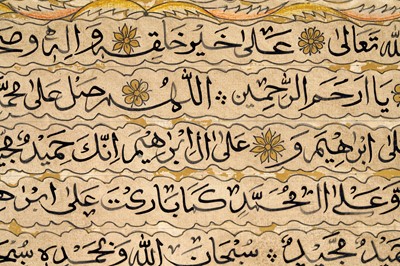 الله تعالى على خير خلقه واله وصحبه
يا ارحم الراحمين اللهم صل على محمد
على ابرهيم و على ال ابرهيم انك حميد مجيد
وعلى ال محمد كما باركت على ابرهيم
حميد مجيد سبحان الله وبحمده سبحان